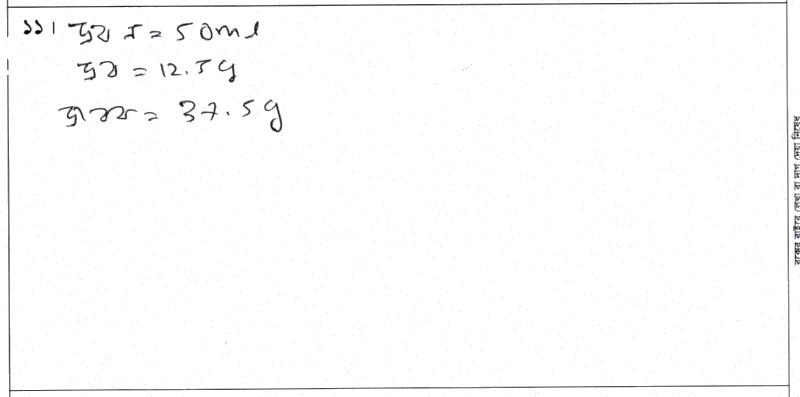 ১১। দ্রবণ = 50ml
দ্রব = 12.5g
দ্রাবক = 37.5g
বক্সের বাইরে লেখা বা দাগ দেয়া নিষেধ